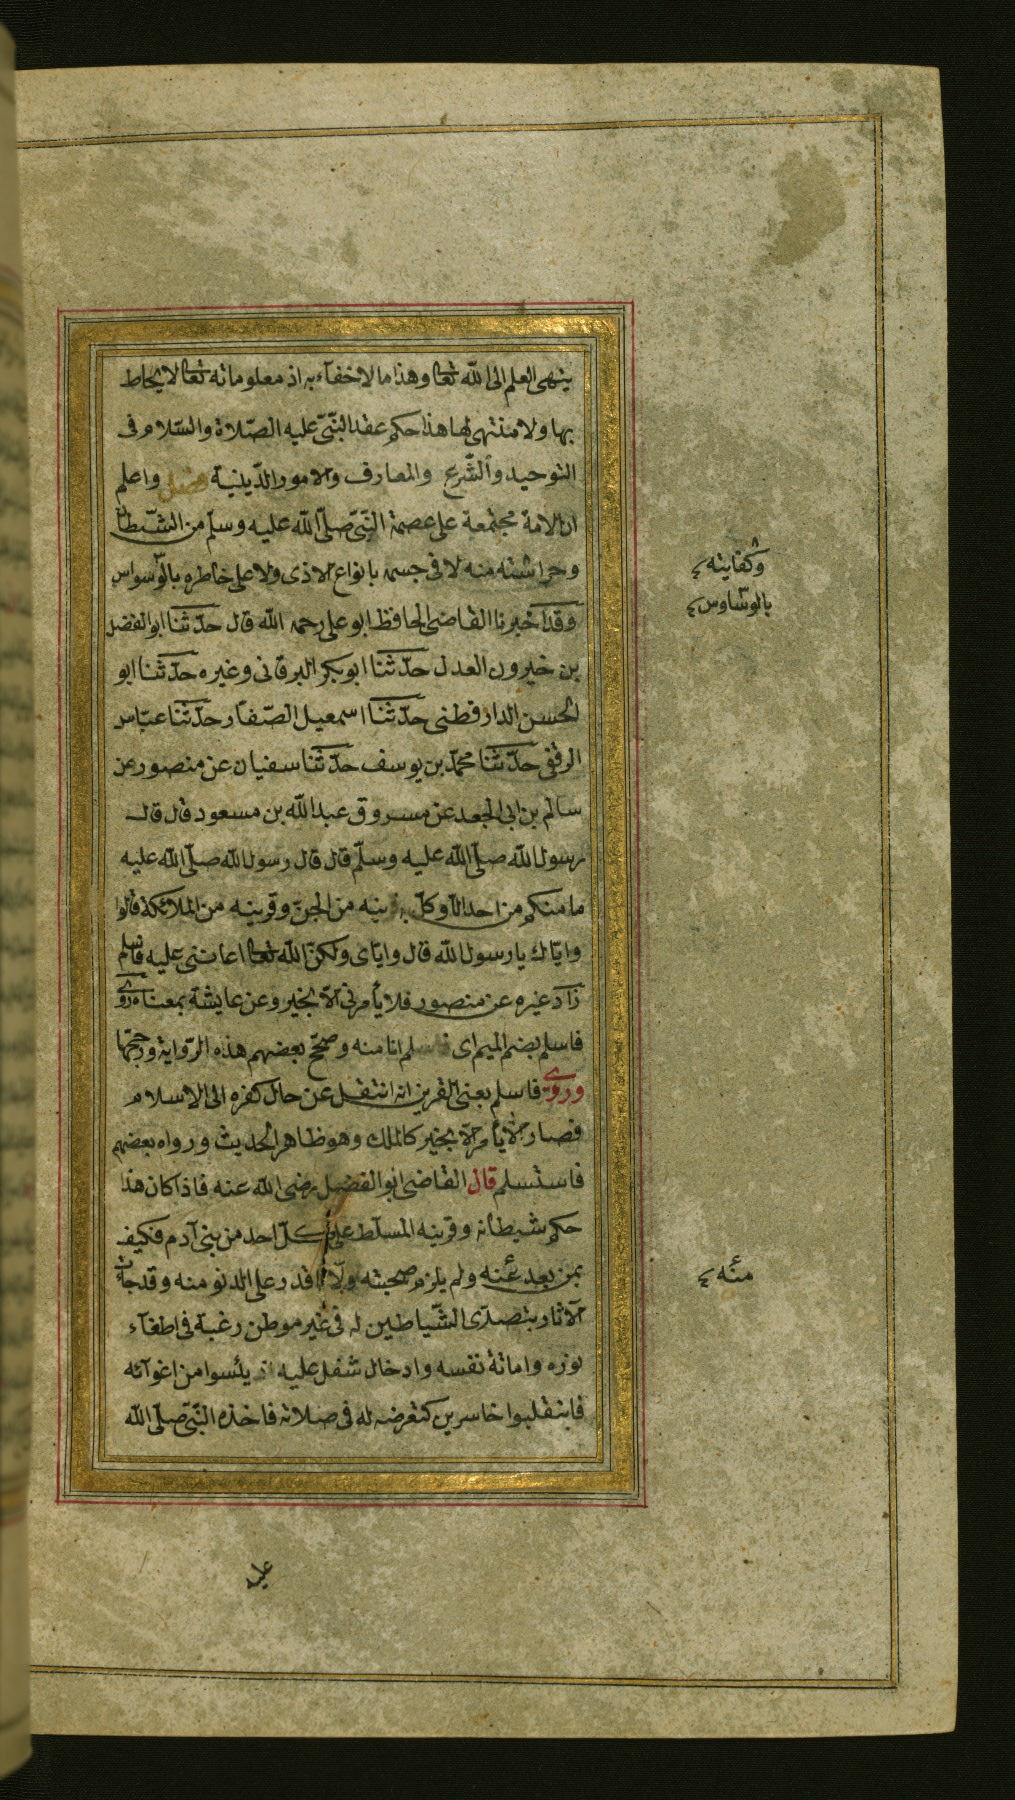 ينهى العلم الى الله تعالى وهذا ما لا خفآء به اذ معلوماته تعالى لا يحاط
بها ولا منتهى لها هذا حكم عقد النّبىّ عليه الصّلاة والسّلام فى
التوحيد والشّرع والمعارف والامور الدّينية فصل واعلم
ان الامة مجتمعة على عصمة النّبىّ صلّى الله عليه وسلّم من الشّيطان
وحراسته منه لا فى جسمه بانواع الاذى ولا على خاطره بالوسواس
وقد اخبرنا القاضى الحافظ ابو على رحمه الله قال حدّثنا ابو الفضل
بن خيرون العدل حدّثنا ابو بكر البرقانى وغيره حدّثنا ابو
الحسن الدارقطنى حدّثنا اسمعيل الصّفّار حدّثنا عبّاس
الرقفى حدّثنا محمّد بن يوسف حدّثنا سفيان عن منصور عن
سالم بن ابى الجعد عن مسروق عبد الله بن مسعود قال قال
رسول الله صلّى الله عليه وسلّم قال قال رسول الله صلّى الله عليه
ما منكم من احد الّا وكلّ به قرينه من الجنّ وقرينه من الملائكة قالوا
وايّاك يا رسول الله قال وايّاى ولكنّ الله تعالى اعاننى عليه فاسلم
زاد غيره عن منصور فلا يأمرنى الّا بخير وعن عايشة بمعناه روى
فاسلم بضم الميم اى فاسلم انا منه وصحّح بعضهم هذه الرّواية ورجّحها
وروى فاسلم يعنى القرين انه انتقل عن حال كفره الى الاسلام
فصار لا يأمر الّا بخير كالملك وهو ظاهر الحديث ورواه بعضهم
فاستسلم قال القاضى ابو الفضل رضى الله عنه فاذا كان هذا
حكم شيطانه وقرينه المسلّط على كلّ احد من بنى آدم فكيف
بمن بعد عنه ولم يلزم صحبته ولا اقدر على الدنو منه وقد جآءت
الآثار بتصدّى الشّياطين له فى غير موطن رغبة فى اطفآء
نوره واماتة نفسه وادخال شغل عليه اذ يئسوا من اغوآئه
فانقلبوا خاسرين كتعرضه له فى صلاته فاخذه النّبىّ صلّى الله
وكفايته
بالوساوس
منه
عليه